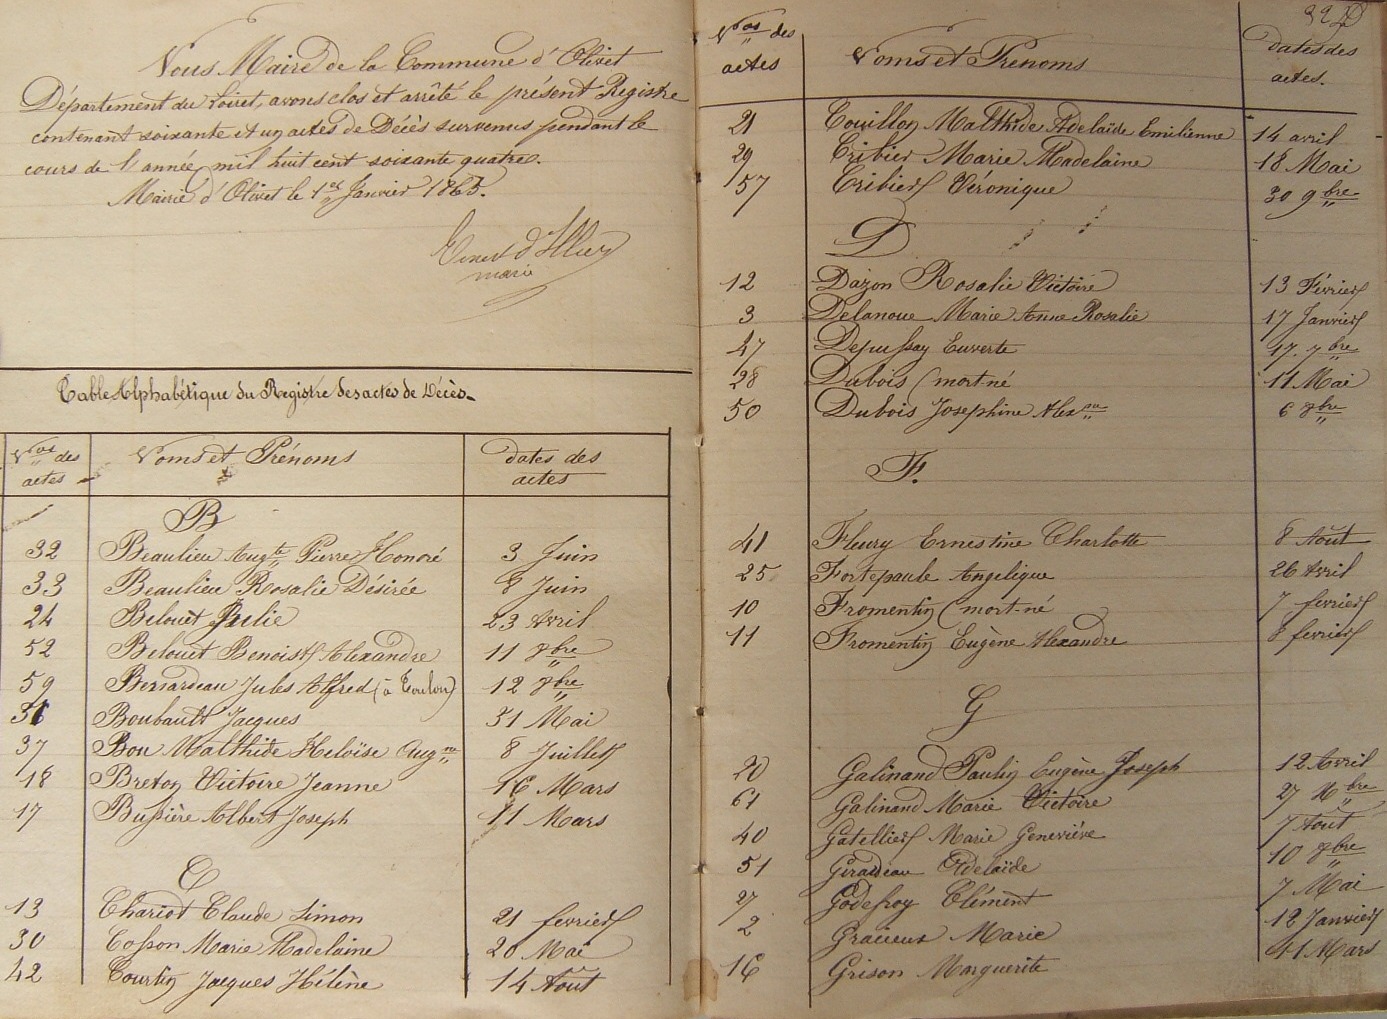 Nous Maire de la Commune d'Olivet
Département du Loiret, avons clos et arrêté le présent Registre
contenant soixante et un actes de Décès survenus pendant le
cours de l'année mil huit cent soixante quatre.
Mairie d'Olivet le 1er Janvier 1865.
Ernest d'Illiers
maire
Table Alphabétique du Registre des actes de Décès.
Nos des actes Noms et Prénoms dates des actes
B
32 Beaulieu Augte Pierre Honoré 3 Juin
33 Beaulieu Rosalie Désirée 8 Juin
24 Belouet Julie 23 Avril
52 Belouet Benoist Alexandre 11 8bre
59 Bernardeau Jules Alfred (à Toulon) 12 8bre
Boubault Jacques 31 Mai
37 Bou Malthide Héloïse Augne 8 Juillet
18 Breton Victoire Jeanne 16 Mars
17 Bussière Albert Joseph 11 Mars
C
13 Chariot Claude Simon 21 fevrier
30 Cosson Marie Madelaine 20 Mai
42 Courtin Jacques Hélène 14 Août
Nos des actes Noms et Prénoms dates des actes.
21 Couillon Malthide Adelaïde Emilienne 14 avril
29 Cribier Marie Madelaine 18 Mai
57 Cribier Véronique 30 9bre
D
12 Dazon Rosalie Victoire 13 Février
3 Delanoue Marie Anne Rosalie 17 Janvier
47 Depussay Euverte 17. 7bre
28 Dubois (mort-né 11 Mai
50 Dubois Josephine Alexne 6 8bre
F.
41 Fleury Ernestine Charlotte 8 Août
25 Fortepaule Angelique 26 Avril
10 Fromentin (mort-né 7 fevrier
11 Fromentin Eugène Alexandre 8 fevrier
G
20 Galinand Paulin Eugène Joseph 12 Avril
61 Galinand Marie Victoire 27 Xbre
40 Gatellier Marie Geneviève 7 Août
51 Girardeau Adelaïde 10 8bre
27 Godefroy Clément 7 Mai
2 Gracieux Marie 12 Janvier
16 Grison Marguerite 11 Mars